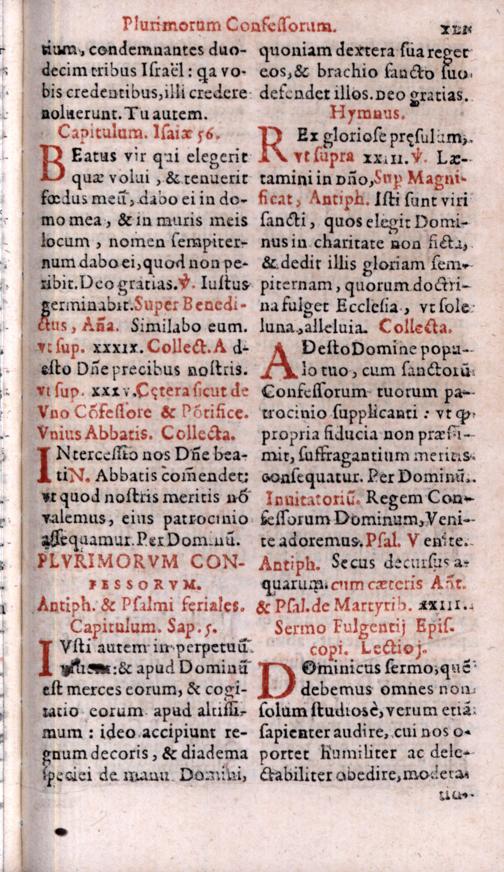 Plurimorum Confessorum.
tium, condemnantes duo-
decim tribus Israël: qa vo-
bis credentibus, illi credere
noluerunt. Tu autem.
Capitulum. Isaiæ 56.
BEatus vir qui elegerit
quæ volui, & tenuerit
fœdus meũ, dabo ei in do-
mo mea, & in muris meis
locum, nomen sempiter-
num dabo ei, quod non pe-
ribit. Deo gratias. ℣. Iustus
germinabit. Super Benedi-
ctus, Aña. Similabo eum.
vt sup. xxxix. Collect. A d-
esto Dñe precibus nostris.
vt sup. xxxv. Cętera sicut de
Vno Cõfessore & Põtifice.
Vnius Abbatis. Collecta.
INtercessio nos Dñe bea-
ti N. Abbatis com̃endet:
vt quod nostris meritis nõ
valemus, eius patrocinio
assequamur. Per Dominũ.
PLVRIMORVM CON-
FESSORVM.
Antiph. & Psalmi feriales.
Capitulum. Sap. 5.
IVsti autem in perpetuũ
:& apud Dominũ
est merces eorum, & cogi-
tatio eorum apud altissi-
mum: ideo accipiunt re-
gnum decoris, & diadema
speciei de manu Domini,
quoniam dextera sua reget
eos, & brachio sancto suo
defendet illos. Deo gratias.
Hymnus.
REx gloriose pręsulum,
vt supra xxiii. ℣. Læ-
tamini in Dño, Sup Magni-
ficat, Antiph. Isti sunt viri
sancti, quos elegit Domi-
nus in charitate non ficta,
& dedit illis gloriam sem-
piternam, quorum doctri-
na fulget Ecclesia, vt sole
luna, alleluia. Collecta.
ADesto Domine popu-
lo tuo, cum sanctorũ
Confessorum tuorum pa-
trocinio supplicanti: vt ꝙ
propria fiducia non præsu-
mit, suffragantium meritis
consequatur. Per Dominũ.
Inuitatoriũ. Regem Con-
fessorum Dominum, Veni-
te adoremus. Psal. Venite.
Antiph. Secus decursus a-
quarum. cum cæteris Añt.
& Psal. de Martyrib. xxiii.
Sermo Fulgentij Epis.
copi. Lectio j.
DOminicus sermo, quẽ
debemus omnes non
solum studiosè, verum etiã
sapienter audire, cui nos o-
portet humiliter ac dele-
ctabiliter obedire, modera-
tio-